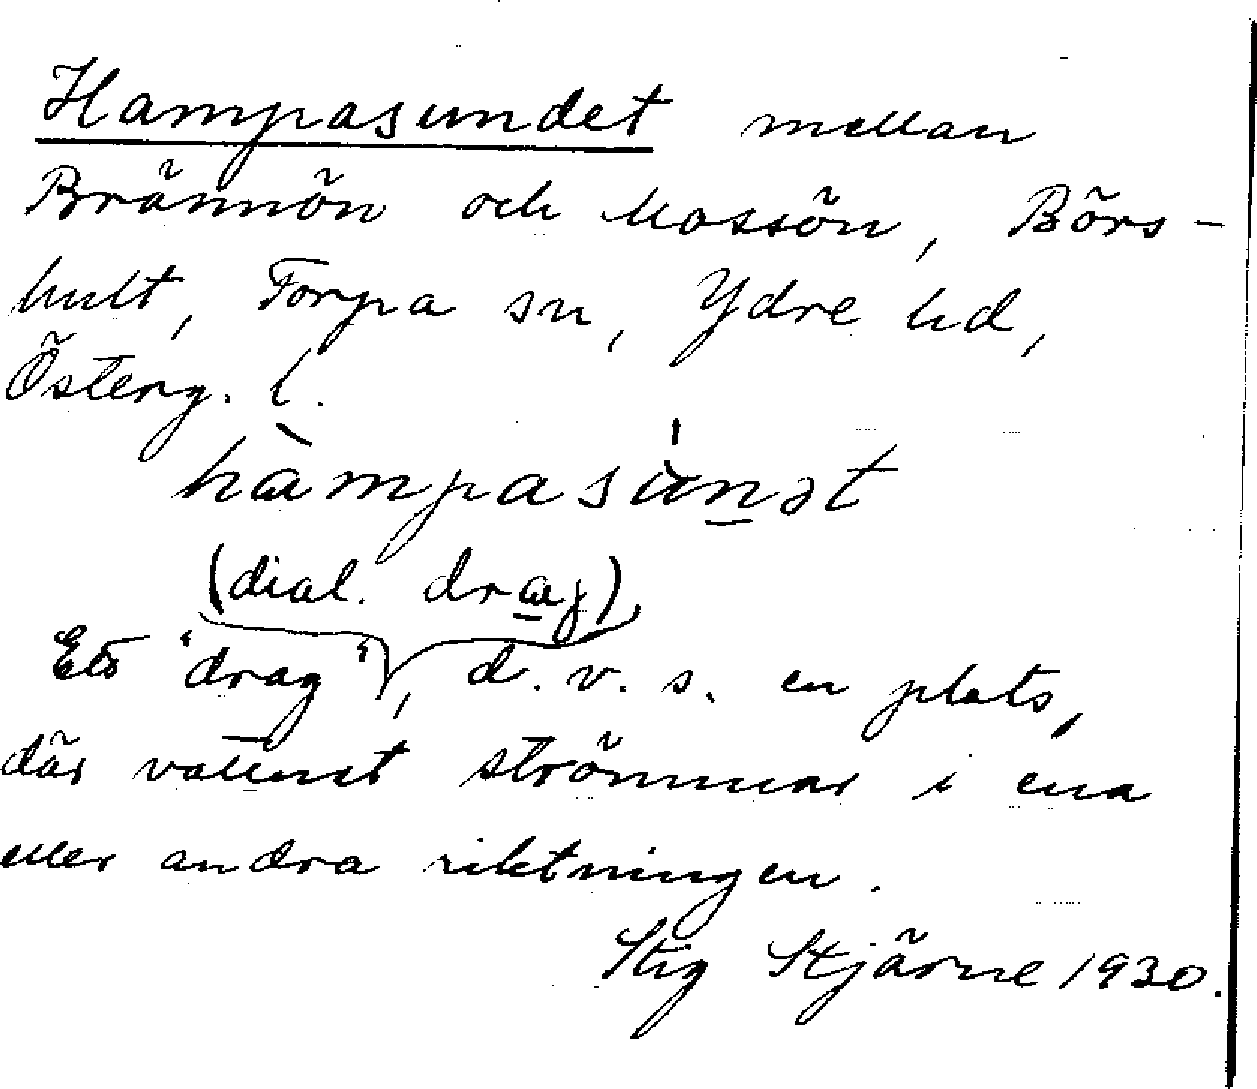 Hampasundet mellan
Brännön och Mossön, Börs-
hult, Torpa sn, Ydre hd,
Österg. l.
hàmpasùnət
(dial. draj)
Ett "drag", d. v. s. en plats,
där vattnet strömmar i ena
eller andra riktningen.
Stig Stjärne 1930.